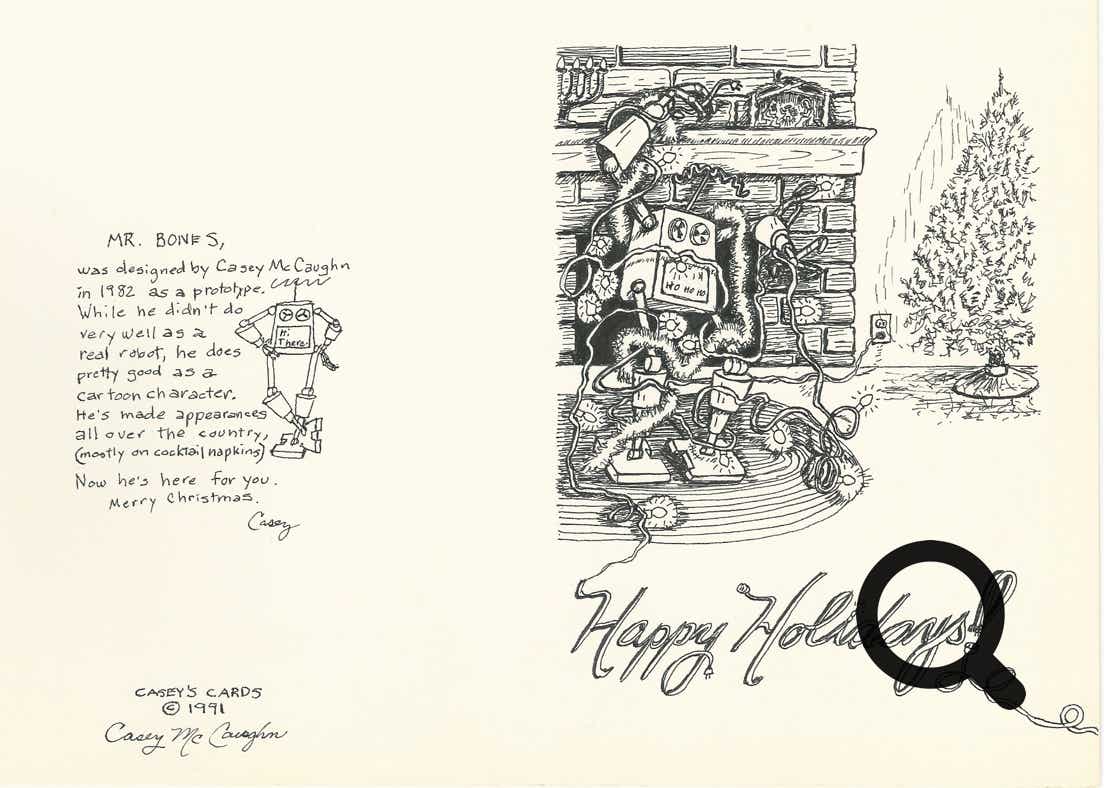 MR. BONES,
was designed by Casey McCaughn
in 1982 as a prototype.
While he didn't do
very well as a
real robot, he does
pretty good as a
cartoon character.
He's made appearances
all over the country,
(mostly on cocktail napkins)
Now he's here for you.
Merry Christmas.
Casey
Hi
There!
CASEY'S CARDS
© 1991
Casey McCaughn
HO HO HO
Happy Holidays!!